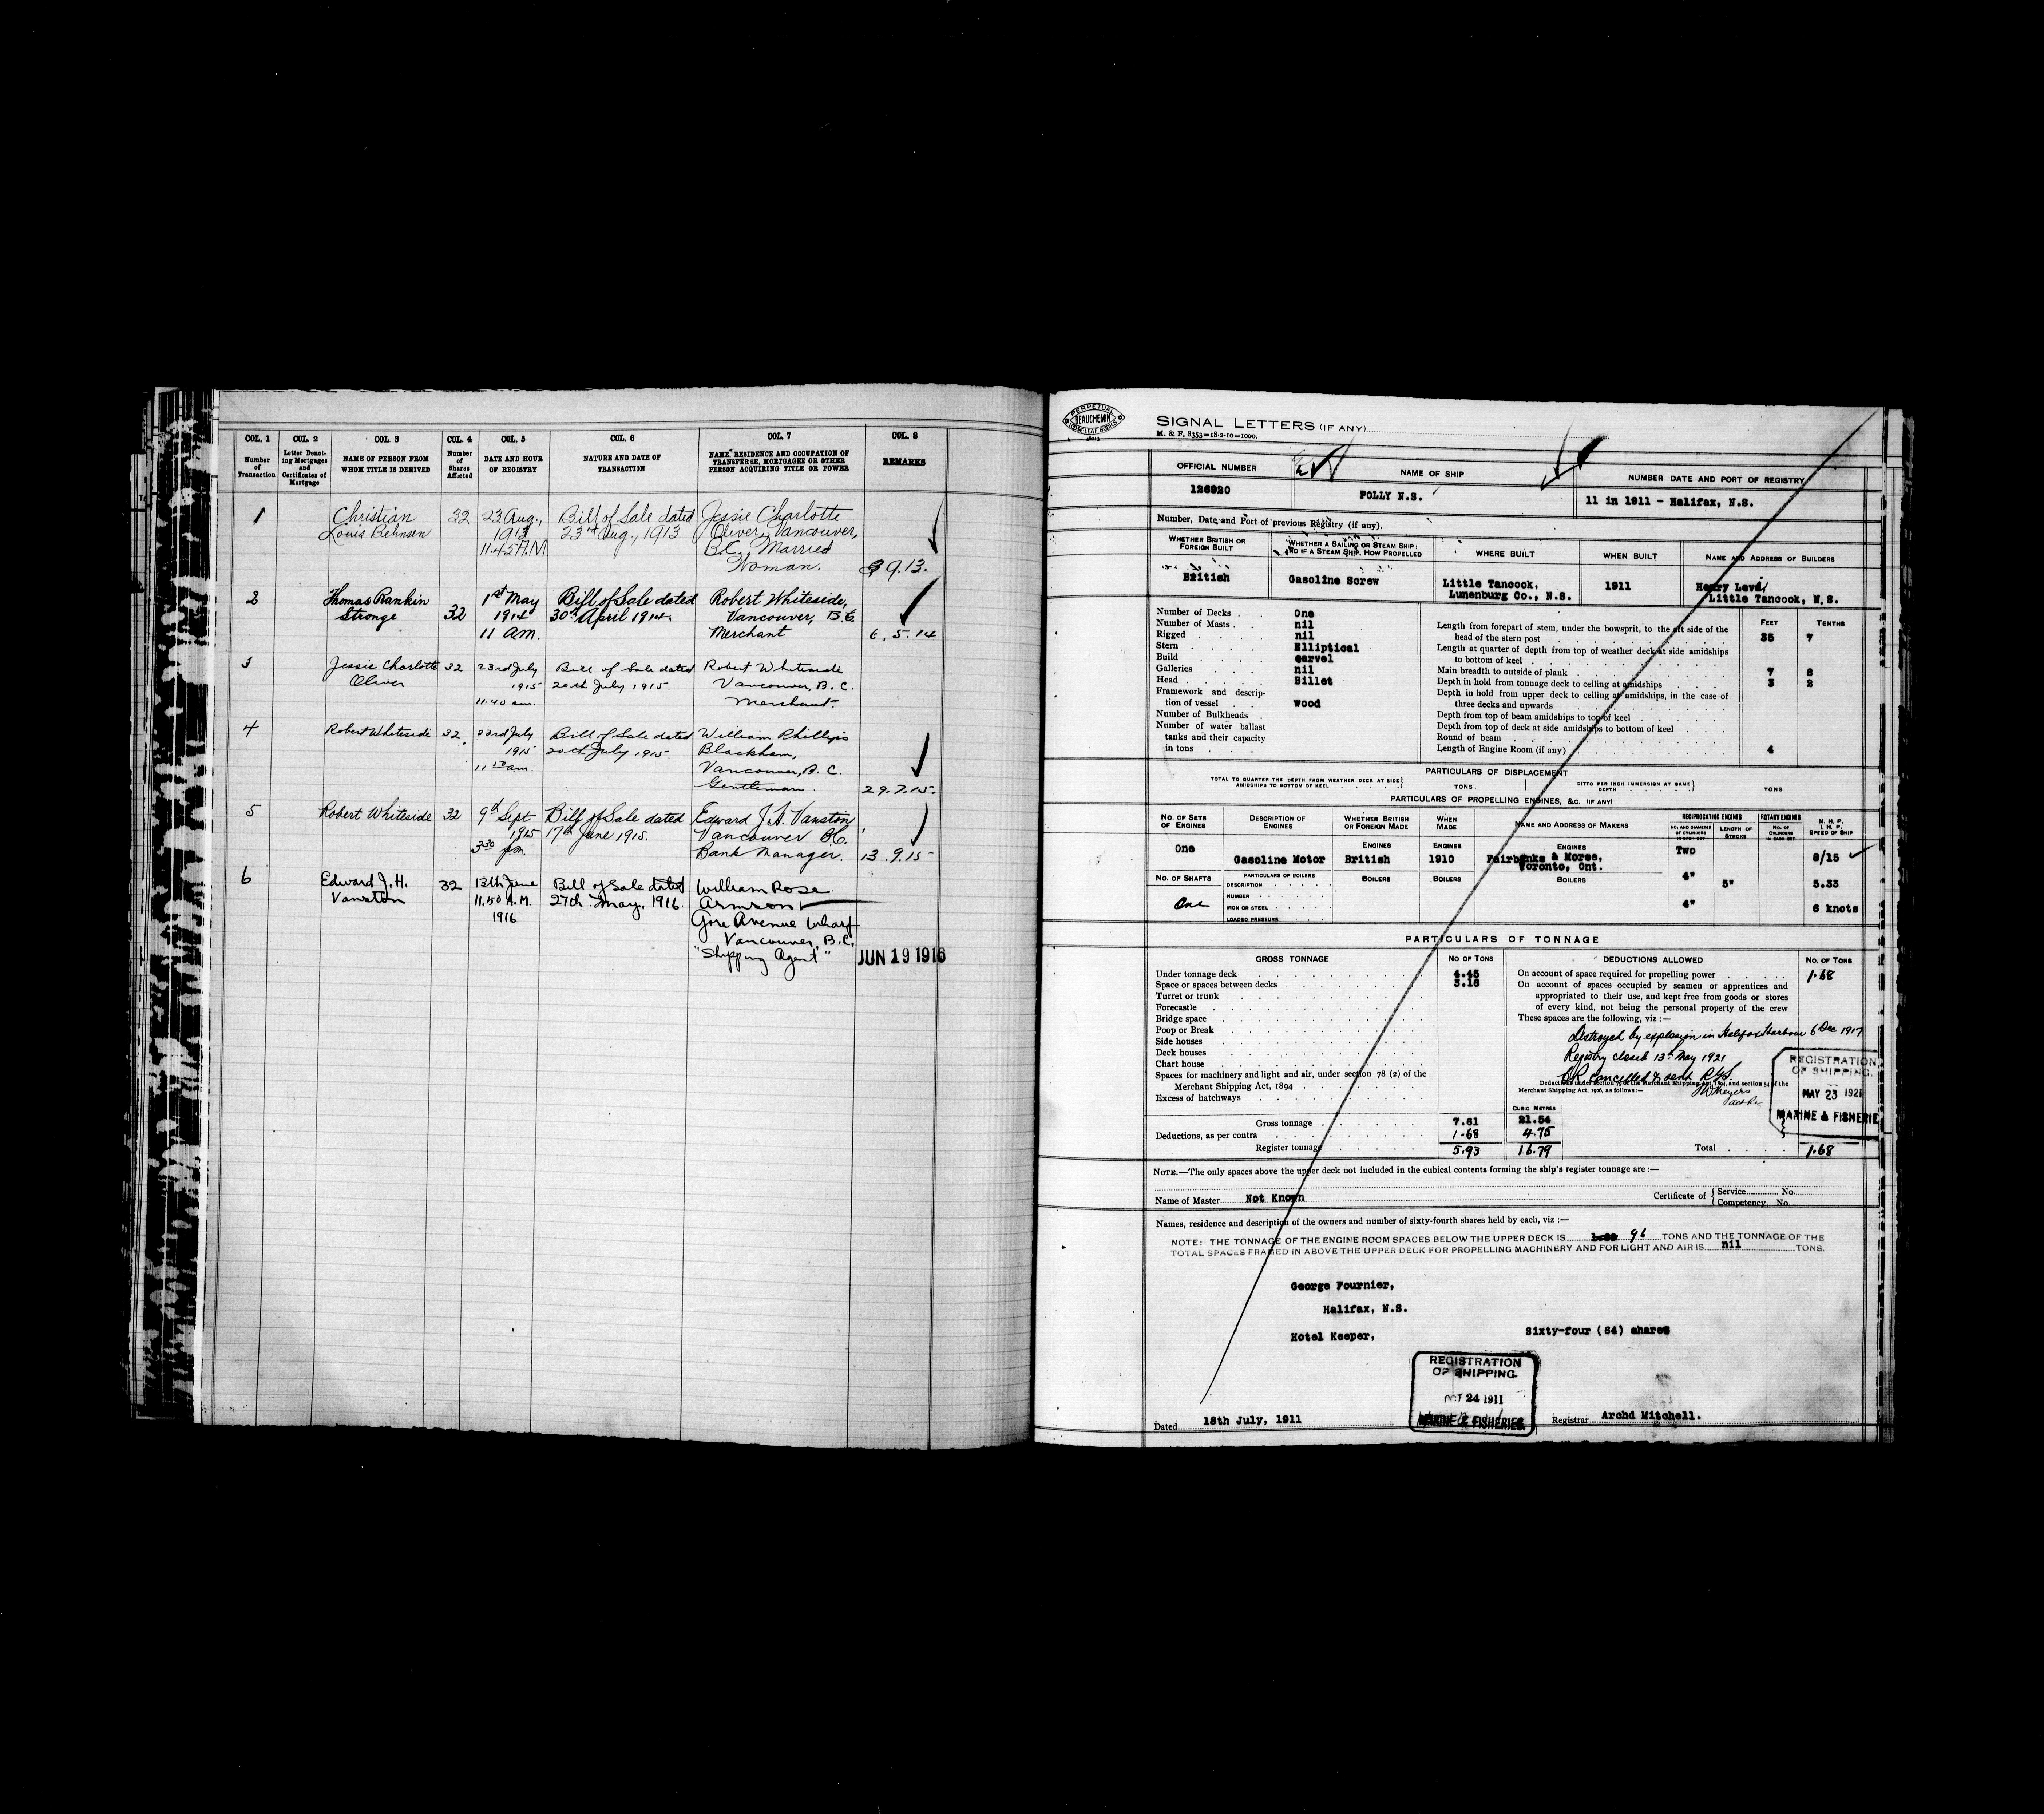 COL. 1 COL. 2 COL. 3 COL. 4 COL. 5 COL. 6 COL. 7 COL. 8
Number of Transaction
Letter Denoting Mortgages and Certificates of Mortgage
NAME OF PERSON FROM WHOM TITLE IS DERIVED
Number of Shares Affected
DATE AND HOUR OF REGISTRY
NATURE AND DATE OF TRANSACTION
NAME, RESIDENCE AND OCCUPATION OF TRANSFEREE, MORTGAGEE OR OTHER PERSON ACQUIRING TITLE OR POWER
REMARKS
1 Christian 32 23 Aug., Bill of Sale dated Jessie Charlotte
Louis Behnsen 1913 23rd Aug., 1913 Oliver, Vancouver,
11.45 A.M. B.C., Married
Woman. 9.13.
2 Thomas Rankin 1st May Bill of Sale dated Robert Whiteside,
Stronge 32 1914 30th April 1914. Vancouver, B.C.
11 AM. Merchant 6.5.14
3 Jessie Charlotte 32 23rd July Bill of Sale dated Robert Whiteside
Oliver 1915 20th July 1915. Vancouver, B.C.
11.40 am. Merchant.
4 Robert Whiteside 32 23rd July Bill of Sale dated William Phillips
1915 20th July 1915. Blackham,
11 50 am. Vancouver, B.C.
Gentleman. 29.7.15.
5 Robert Whiteside 32 9th Sept Bill of Sale dated Edward J.H. Vanston
1915 17th June 1915. Vancouver B.C.
3 30 pm. Bank Manager. 13.9.15
6 Edward J. H. 32 13th June Bill of Sale dated William Rose
Vanston 11.50 A.M. 27th May, 1916. Armson
1916 Gore Avenue Wharf
Vancouver, B.C.
"Shipping Agent" JUN 19 1916
PERPETUAL
BEAUCHEMIN
LOOSE-LEAF BOOKS
SIGNAL LETTERS (IF ANY)
M. & F. 8353—18-2-10—1000.
OFFICIAL NUMBER NAME OF SHIP NUMBER DATE AND PORT OF REGISTRY
126920 POLLY N.S. 11 in 1911 - Halifax, N.S.
Number, Date and Port of previous Registry (if any).
WHETHER BRITISH OR FOREIGN BUILT
WHETHER A SAILING OR STEAM SHIP: AND IF A STEAM SHIP, HOW PROPELLED
WHERE BUILT WHEN BUILT NAME AND ADDRESS OF BUILDERS
British Gasoline Screw Little Tancook, 1911 Henry Levi,
Lunenburg Co., N.S. Little Tancook, N.S.
Number of Decks One
Number of Masts nil
Rigged nil
Stern Elliptical
Build carvel
Galleries nil
Head Billet
Framework and description of vessel wood
Number of Bulkheads
Number of water ballast
tanks and their capacity
in tons
FEET TENTHS
Length from forepart of stem, under the bowsprit, to the aft side of the
head of the stern post 35 7
Length at quarter of depth from top of weather deck at side amidships
to bottom of keel
Main breadth to outside of plank 7 8
Depth in hold from tonnage deck to ceiling at amidships 3 2
Depth in hold from upper deck to ceiling at amidships, in the case of
three decks and upwards
Depth from top of beam amidships to top of keel
Depth from top of deck at side amidships to bottom of keel
Round of beam
Length of Engine Room (if any) 4
PARTICULARS OF DISPLACEMENT
TOTAL TO QUARTER THE DEPTH FROM WEATHER DECK AT SIDE AMIDSHIPS TO BOTTOM OF KEEL TONS DITTO PER INCH IMMERSION AT SAME DEPTH TONS
PARTICULARS OF PROPELLING ENGINES, &C. (IF ANY)
NO. OF SETS OF ENGINES
DESCRIPTION OF ENGINES
WHETHER BRITISH OR FOREIGN MADE
WHEN MADE
NAME AND ADDRESS OF MAKERS
RECIPROCATING ENGINES ROTARY ENGINES
NO. AND DIAMETER OF CYLINDERS IN EACH SET
LENGTH OF STROKE
NO. OF CYLINDERS IN EACH SET
N. H. P. I. H. P. SPEED OF SHIP
ENGINES ENGINES ENGINES
One Gasoline Motor British 1910 Fairbanks & Morse, Two 8/15
Toronto, Ont.
4" 5" 5.33
NO. OF SHAFTS PARTICULARS OF BOILERS BOILERS BOILERS BOILERS
DESCRIPTION
NUMBER
One IRON OR STEEL 4" 6 knots
LOADED PRESSURE
PARTICULARS OF TONNAGE
GROSS TONNAGE NO OF TONS DEDUCTIONS ALLOWED NO. OF TONS
Under tonnage deck 4.45
Space or spaces between decks 3.16
Turret or trunk
Forecastle
Bridge space
Poop or Break
Side houses
Deck houses
Chart house
Spaces for machinery and light and air, under section 78 (2) of the
Merchant Shipping Act, 1894
Excess of hatchways
On account of space required for propelling power 1.68
On account of spaces occupied by seamen or apprentices and
appropriated to their use, and kept free from goods or stores
of every kind, not being the personal property of the crew
These spaces are the following, viz :—
Destroyed by explosion in Halifax Harbour 6 Dec 1917
Registry closed 13th May 1921
CR Cancelled & sent RGS.
Deductions under section 79 of the Merchant Shipping Act, 1894, and section 54 of the
Merchant Shipping Act, 1906, as follows :—
REGISTRATION
OF SHIPPING.
MAY 23 1921
MARINE & FISHERIE
CUBIC METRES
Gross tonnage 7.61 21.54
Deductions, as per contra 1.68 4.75
Register tonnage 5.93 16.79
Total 1.68
NOTE.—The only spaces above the upper deck not included in the cubical contents forming the ship's register tonnage are :—
Name of Master Not Known Certificate of Service No.
Competency No.
Names, residence and description of the owners and number of sixty-fourth shares held by each, viz :—
NOTE: THE TONNAGE OF THE ENGINE ROOM SPACES BELOW THE UPPER DECK IS 96 TONS AND THE TONNAGE OF THE
TOTAL SPACES FRAMED IN ABOVE THE UPPER DECK FOR PROPELLING MACHINERY AND FOR LIGHT AND AIR IS nil TONS.
George Fournier,
Halifax, N.S.
Hotel Keeper, Sixty-four (64) shares
REGISTRATION
OF SHIPPING.
OCT 24 1911
MARINE & FISHERIES.
Dated 18th July, 1911 Registrar Archd Mitchell.